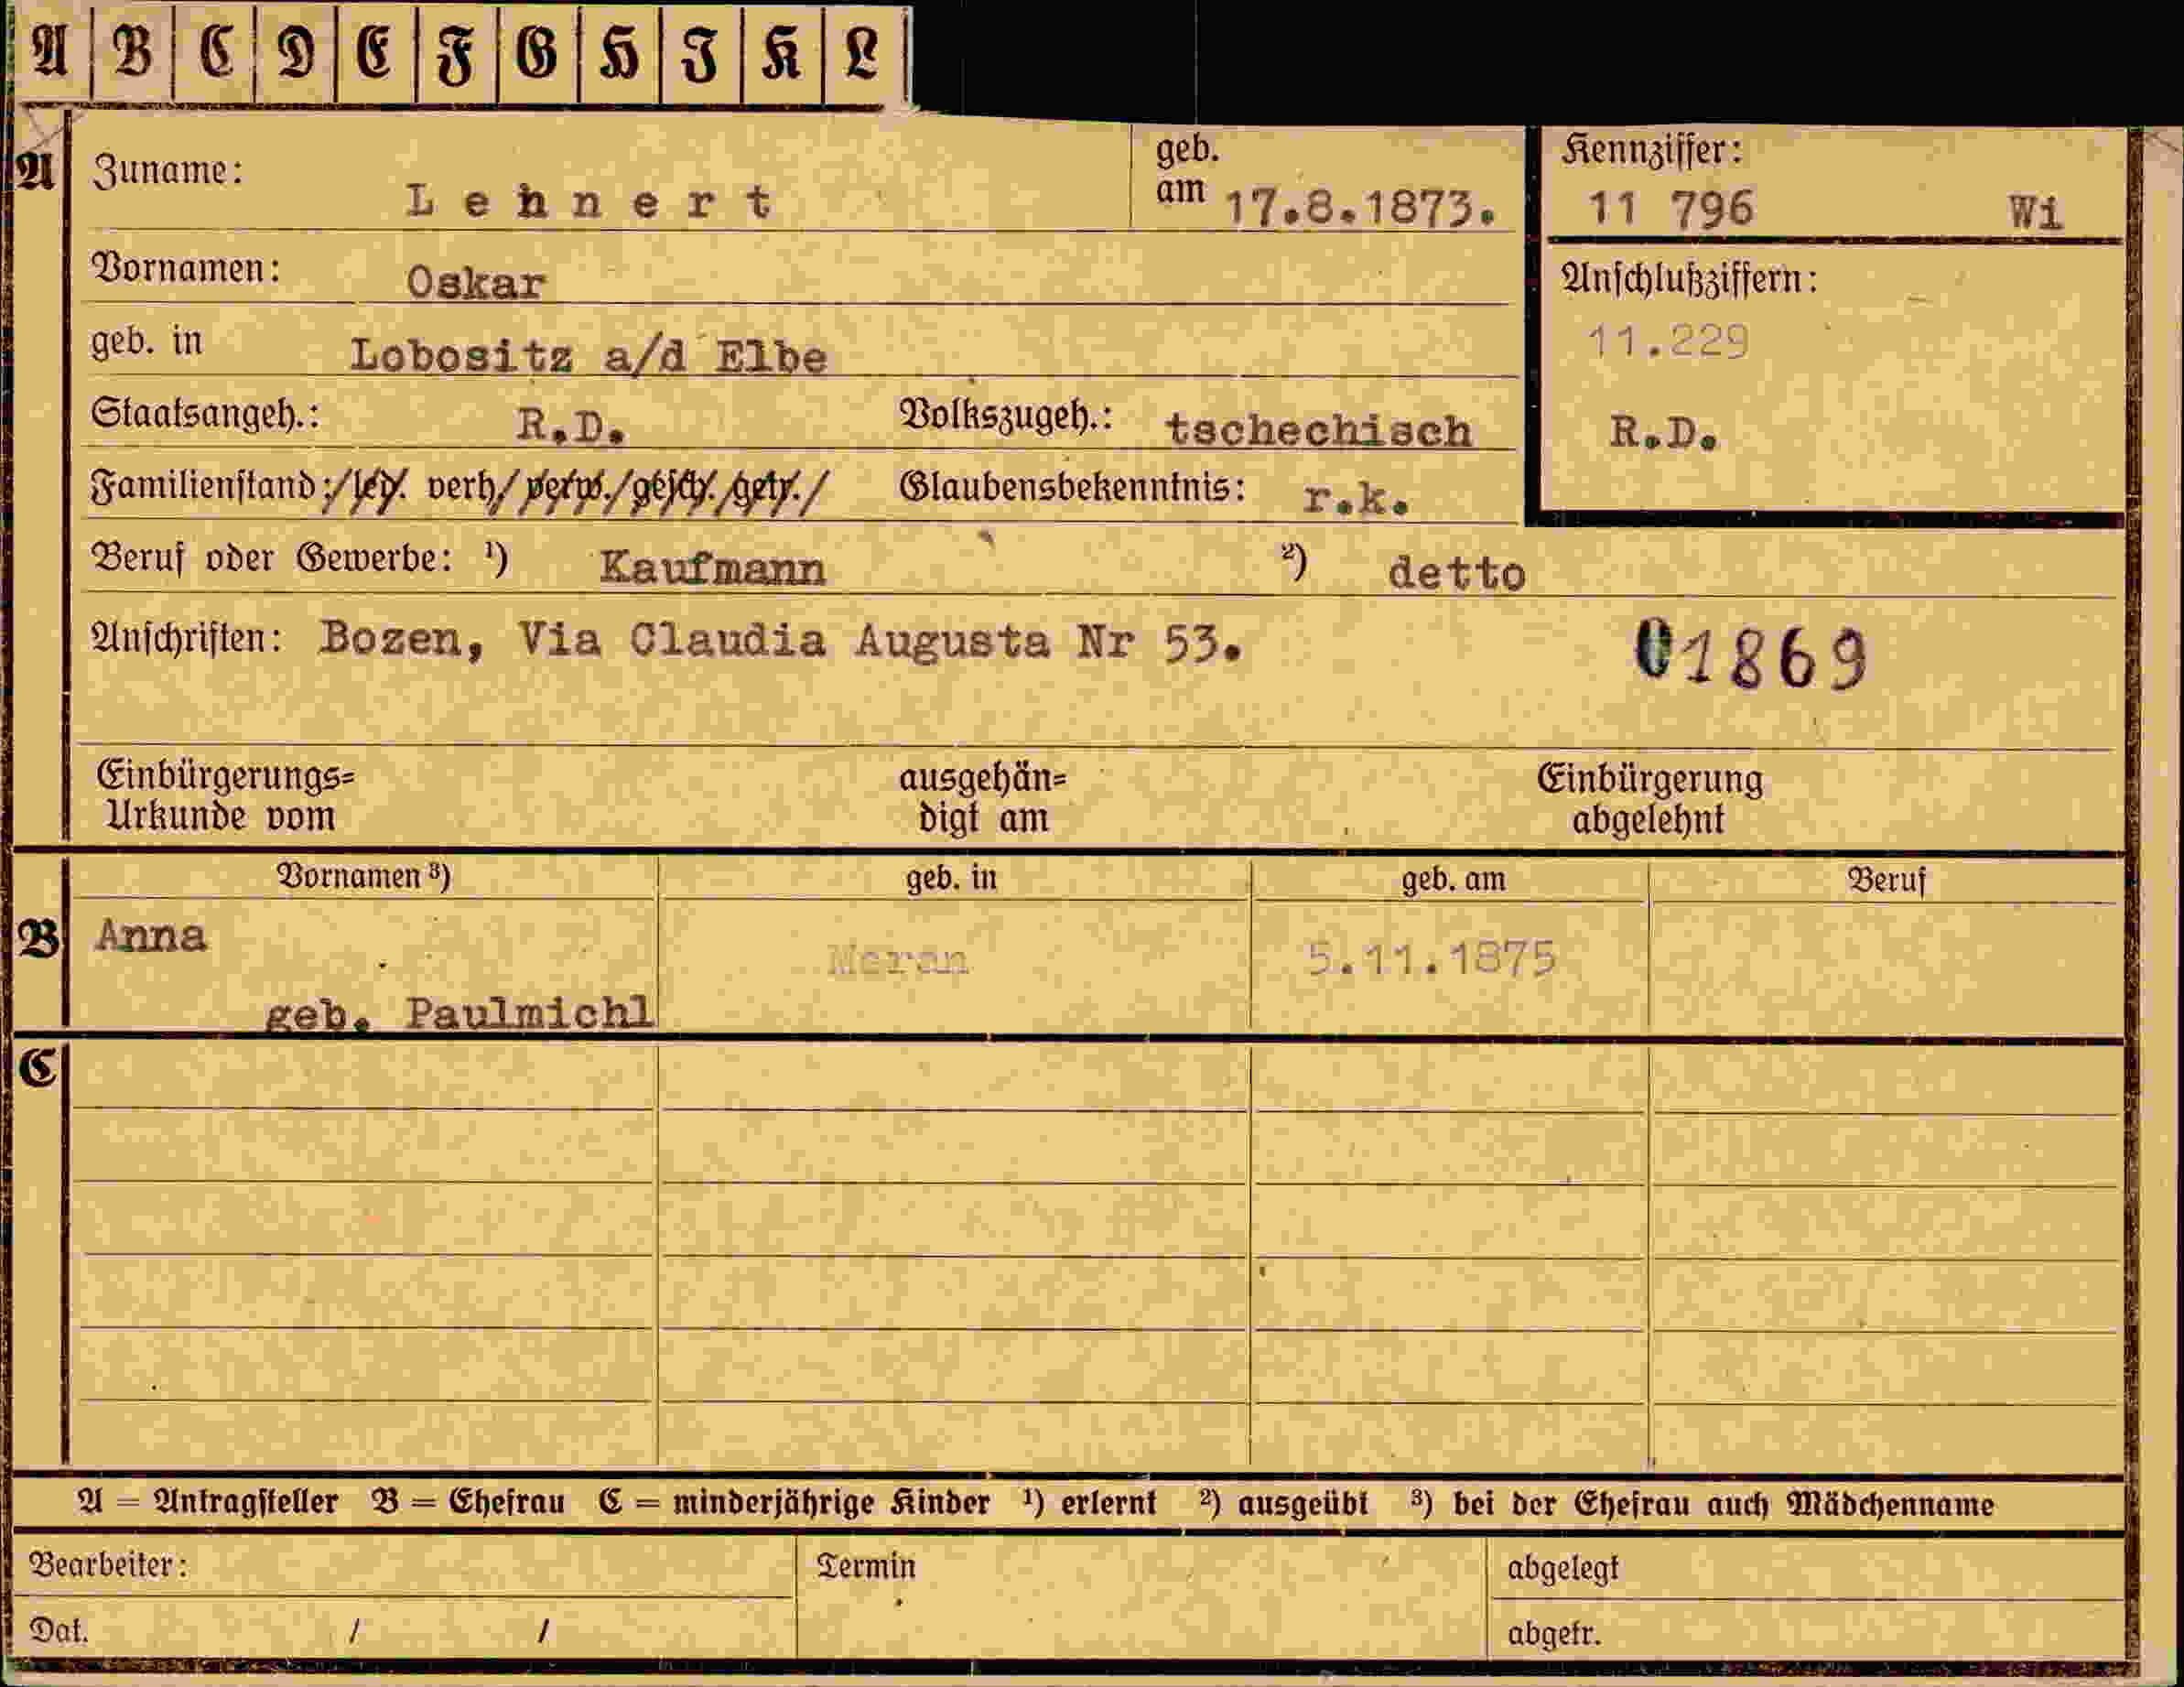 A B C D E F G H I K L
A Zuname: Lehnert geb. am 17.8.1873.
Kennziffer: 11 796 Wi
Vornamen: Oskar
Anschlußziffern:
geb. in Lobositz a/d Elbe
11.229
Staatsangeh.: R.D. Volkszugeh.: tschechisch
R.D.
Familienstand:/led. verh/verw./gesch./getr./ Glaubensbekenntnis: r.k.
Beruf oder Gewerbe: ¹) Kaufmann ²) detto
Anschriften: Bozen, Via Claudia Augusta Nr 53.
01869
Einbürgerungs= ausgehän= Einbürgerung
Urkunde vom digt am abgelehnt
Vornamen ³) geb. in geb. am Beruf
B Anna Meran 5.11.1875
geb. Paulmichl
C
A = Antragsteller B = Ehefrau C = minderjährige Kinder ¹) erlernt ²) ausgeübt ³) bei der Ehefrau auch Mädchenname
Bearbeiter: Termin abgelegt
Dat. / / abgetr.